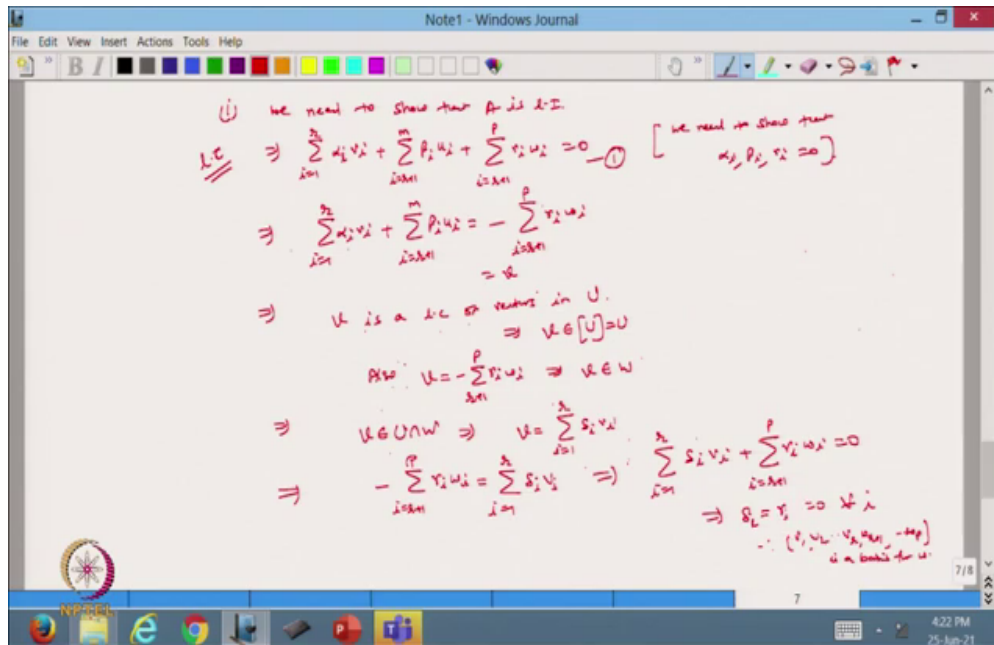 Note1 - Windows Journal
File Edit View Insert Actions Tools Help
B I
(i) we need to show that A is L.I.
L.C ⇒ ∑_{i=1}^{r} αᵢvᵢ + ∑_{i=r+1}^{m} βᵢuᵢ + ∑_{i=r+1}^{p} γᵢwᵢ = 0 — ① [we need to show that
αᵢ, βᵢ, γᵢ = 0]
⇒ ∑_{i=1}^{r} αᵢvᵢ + ∑_{i=r+1}^{m} βᵢuᵢ = - ∑_{i=r+1}^{p} γᵢwᵢ
= v
⇒ v is a l.c of vectors in U.
⇒ v ∈ [U] = U
Also v = - ∑_{r+1}^{p} γᵢwᵢ ⇒ v ∈ W
⇒ v ∈ U∩W ⇒ v = ∑_{i=1}^{r} δᵢvᵢ
⇒ - ∑_{i=r+1}^{p} γᵢwᵢ = ∑_{i=1}^{r} δᵢvᵢ ⇒ ∑_{i=1}^{r} δᵢvᵢ + ∑_{i=r+1}^{p} γᵢwᵢ = 0
⇒ δᵢ = γᵢ = 0 ∀ i
∴ {v₁, v₂ .. vᵣ, wᵣ₊₁, -- wₚ}
is a basis for W.
7/8
NPTEL
7
4:22 PM
25-Jun-21